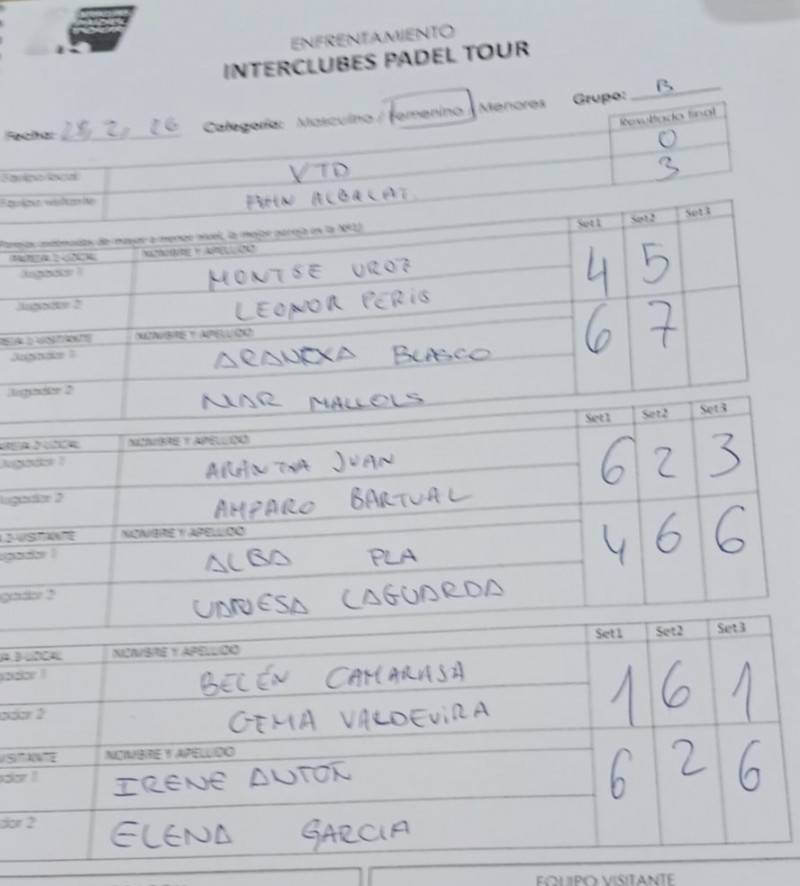 ENFRENTAMIENTO
INTERCLUBES PADEL TOUR
Fecha: 28 2, 26 Categoría: Masculino / Femenino / Menores Grupo: B
Resultado final
Equipo local VTD 0
Equipo visitante ALBALAT 3
Set1 Set2 Set3
PAREJA 1-LOCAL NOMBRE Y APELLIDO
Jugador 1 MONTSE UROZ 4 5
Jugador 2 LEONOR PERIS
PAREJA 1-VISITANTE NOMBRE Y APELLIDO 6 7
Jugador 1 ARANTXA BLASCO
Jugador 2 MAR MALLOLS
Set1 Set2 Set3
AREJA 2-LOCAL NOMBRE Y APELLIDO
Jugador 1 ARANTXA JUAN 6 2 3
Jugador 2 AMPARO BARTUAL
2-VISITANTE NOMBRE Y APELLIDO 4 6 6
ugador 1 ALBA PLA
gador 2 VANESA LAGUARDA
Set1 Set2 Set3
JA 3-LOCAL NOMBRE Y APELLIDO
gador 1 BELÉN CAMARASA 1 6 1
ador 2 GEMA VALDEVIRA
VISITANTE NOMBRE Y APELLIDO 6 2 6
dor 1 IRENE ANTON
dor 2 ELENA GARCIA
EQUIPO VISITANTE